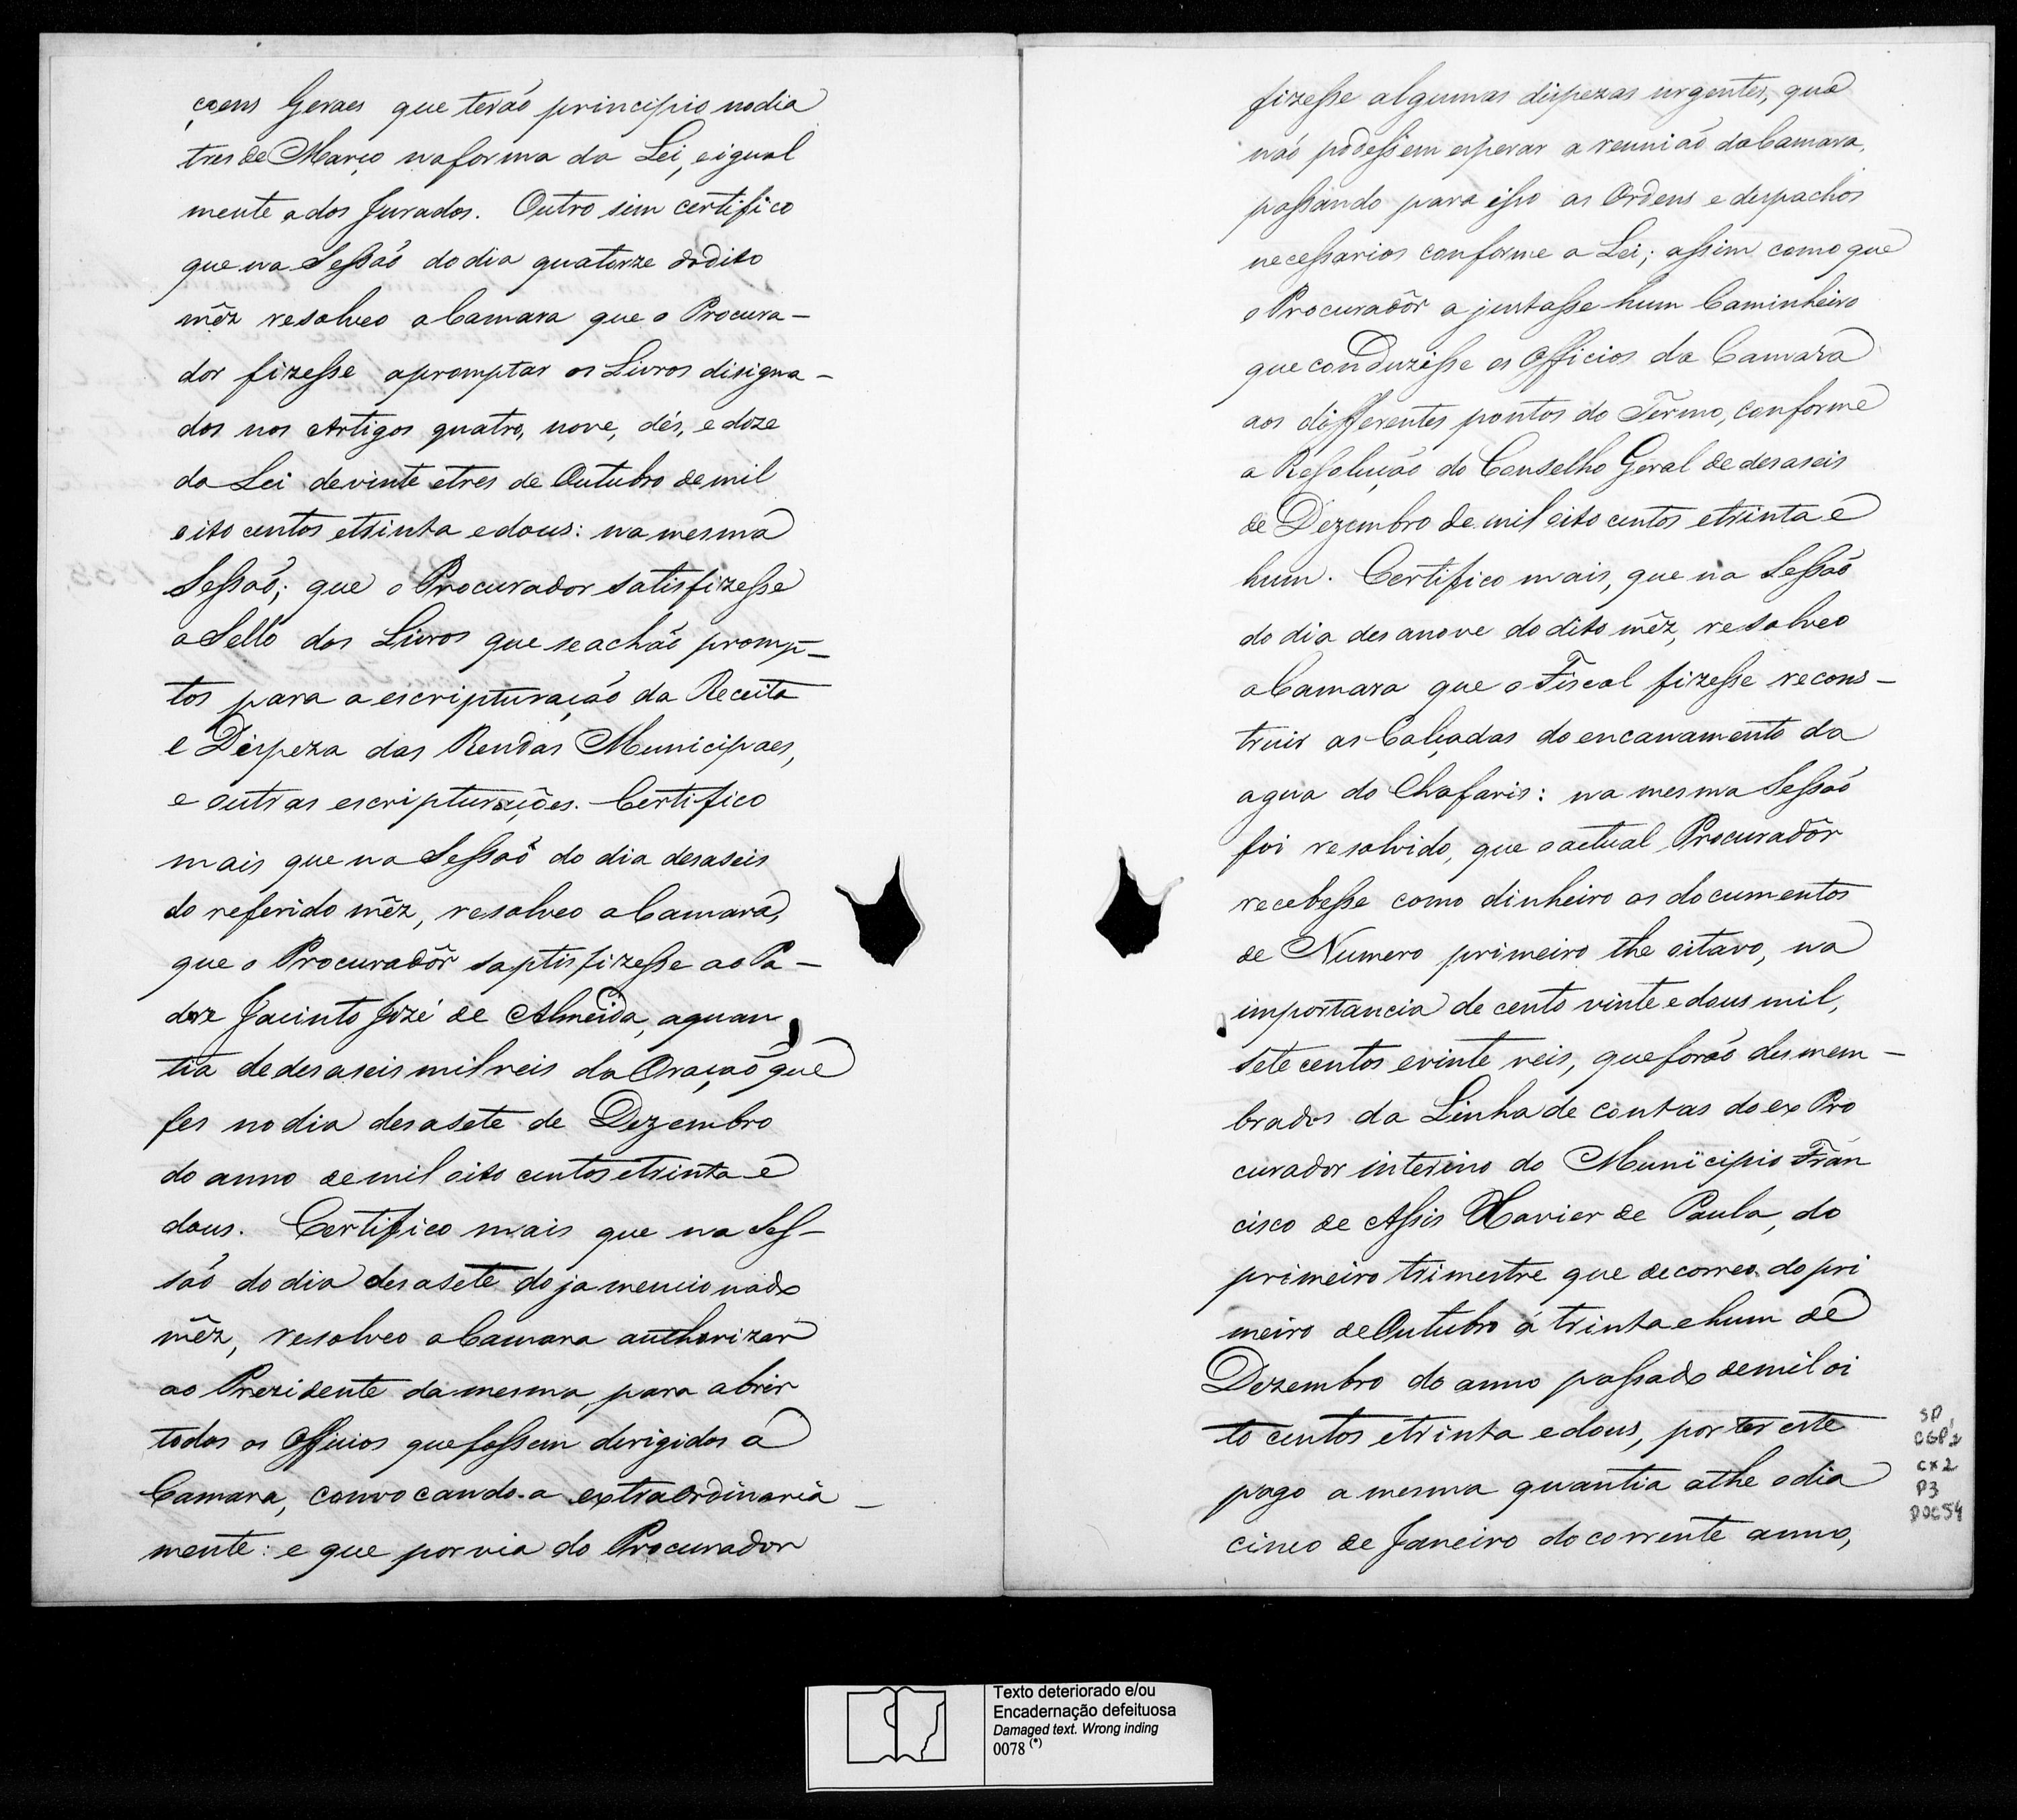 çoens Geraes que terão principio no dia
tres de Março na forma da Lei, e igual
mente a dos Jurados. Outro sim certifico
que na Sessão do dia quatorze do dito
mêz resolveo a Camara que o Procura-
dor fizesse apromptar os Livros disigna-
dos nos Artigos quatro, nove, dés, e doze
da Lei de vinte e tres de Outubro de mil
oito centos e trinta e dous: na mesma
Sessão; que o Procurador satisfizesse
o Sello dos Livros que se achão promp-
tos para a escripturação da Receita
e Dispeza das Rendas Municipaes,
e outras escripturações. Certifico
mais que na Sessão do dia desaseis
do referido mêz, resolveo a Camara,
que o Procuradôr saptisfizesse ao Pa-
dre Jacinto Jozé de Almeida, a quan
tia de desaseis mil reis da Oração que
fes no dia desasete de Dezembro
do anno de mil oito centos e trinta e
dous. Certifico mais que na Ses-
são do dia desasete do ja mencionado
mêz, resolveo a Camara authorizar
ao Prezidente da mesma, para abrir
todos os Officios que fossem dirigidos á
Camara, convocando-a extraordinaria-
mente: e que por via do Procurador
fizesse algumas dispezas urgentes, que
não podessem esperar a reunião da Camara,
passando para isso as Ordens e despachos
necessarios conforme a Lei; assim como que
o Procuradôr ajustasse hum Caminheiro
que conduzisse os Officios da Camara
aos differentes pontos do Termo, conforme
a Resolução do Conselho Geral de desaseis
de Dezembro de mil oito centos e trinta e
hum. Certifico mais, que na Sessão
do dia desanove do dito mêz, resolveo
a Camara que o Fiscal fizesse recons-
truir as Calçadas do encanamento da
agua do Chafaris: na mesma Sessão
foi resolvido, que o actual Procuradôr
recebesse como dinheiro os documentos
de Numero primeiro the oitavo, na
importancia de cento vinte e dous mil,
sete centos e vinte reis, que forão desmem-
brados da Linha de contas do ex Pro
curador interino do Municipio Fran
cisco de Assis Xavier de Paula, do
primeiro trimestre que decorreo do pri
meiro de Outubro á trinta e hum de
Dezembro do anno passado de mil oi
to centos e trinta e dous, por ter este
pago a mesma quantia athe o dia
cinco de Janeiro do corrente anno,
SP,
CGP1
CX2
P3
DOC54
Texto deteriorado e/ou
Encadernação defeituosa
Damaged text. Wrong inding
0078 (*)